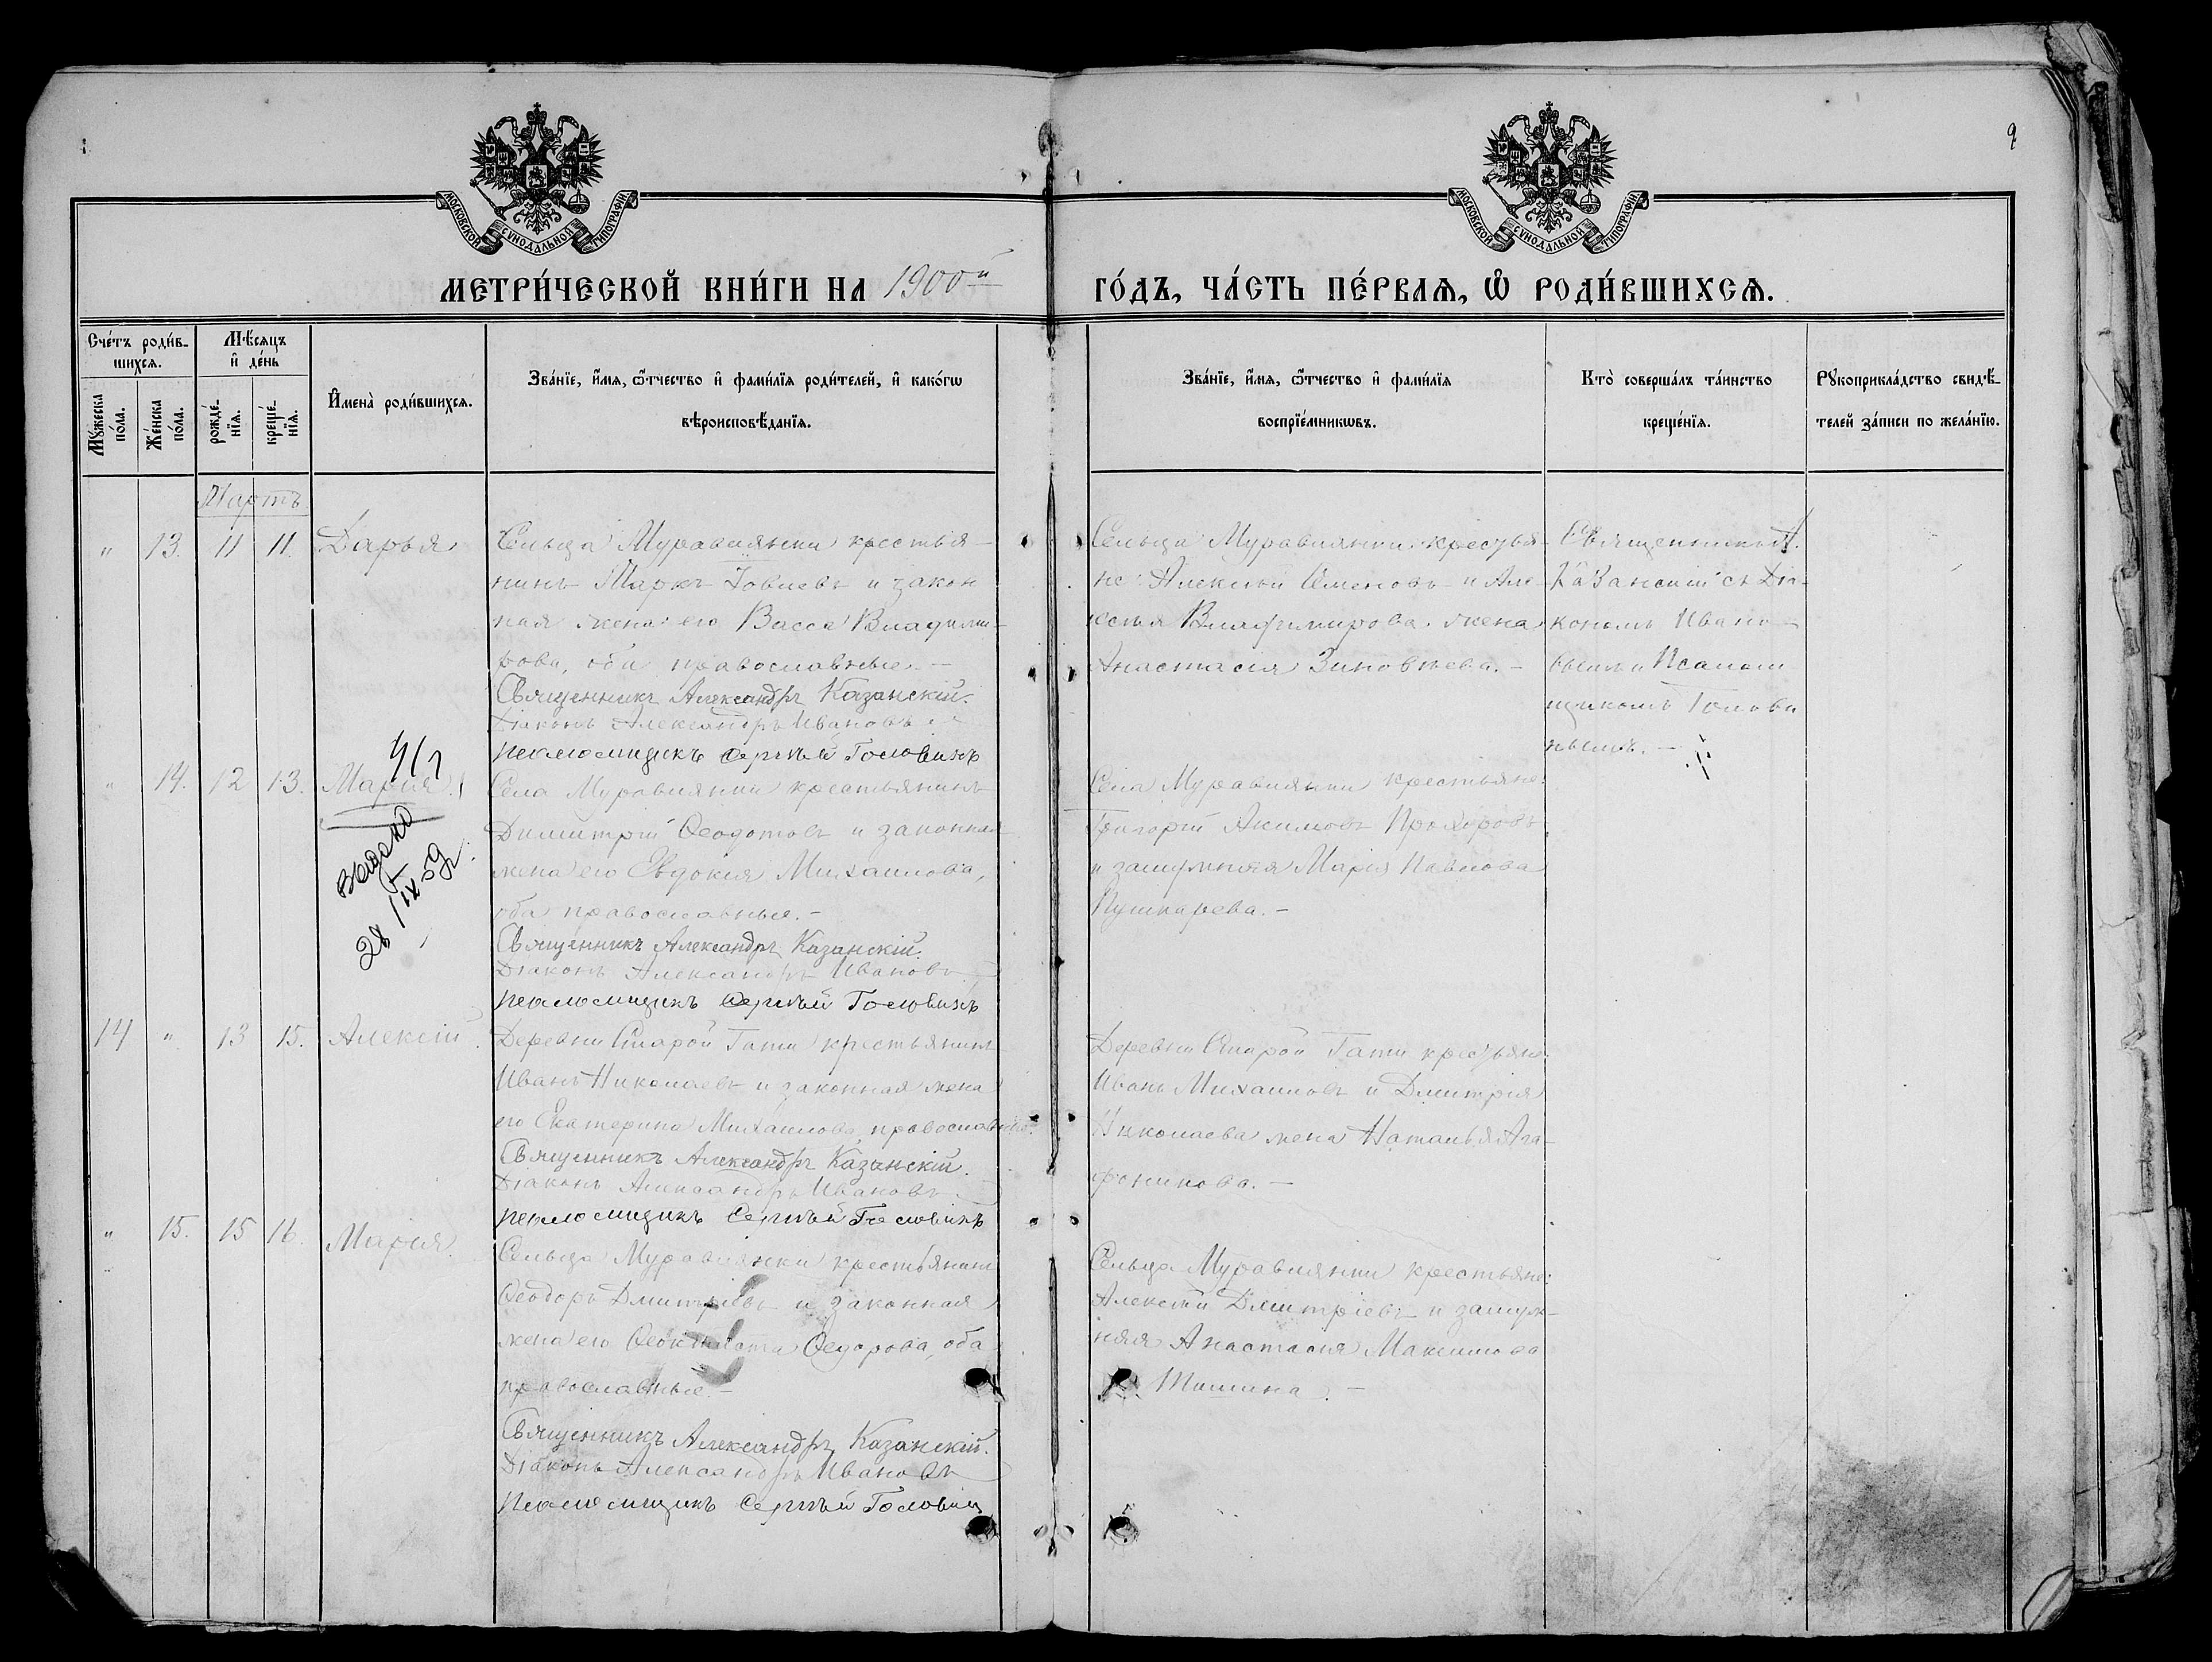 9
МОСКОВСКОЙ СѴНОДАЛЬНОЙ ТИПОГРАФІИ.
МОСКОВСКОЙ СѴНОДАЛЬНОЙ ТИПОГРАФІИ.
МЕТРИ́ЧЕСКОЙ КНИ́ГИ НА 1900й
ГО́ДЪ, ЧА́СТЬ ПЕ́РВАѦ, Ѽ РОДИ́ВШИХСѦ.
Сче́тъ роди́в-
шихсѧ.
Мѣ́сѧцъ
и҆ де́нь
Мꙋ́жеска
по́ла.
Же́нска
по́ла.
рожде́-
нїѧ.
креще́-
нїѧ.
И҆мена̀ роди́вшихсѧ.
Зва́нїе, и҆́мѧ, ѻ҆́тчество и҆ фами́лїѧ роди́телей, и҆ како́гѡ
вѣроисповѣ́данїѧ.
Зва́нїе, и҆́мѧ, ѻ҆́тчество и҆ фами́лїѧ
воспрїе́мникѡвъ.
Кто̀ соверша́лъ та́инство
креще́нїѧ.
Рꙋкоприкла́дство свидѣ́-
телей за́писи по жела́нїю.
Мартъ
" 13. 11 11. Дарья
Сельца Муравлянки крестья-
нинъ Маркъ Іовлевъ и закон
ная жена его Васса Владими-
рова, оба православные. -
Священникъ Александръ Казанскій.
Діаконъ Александръ Ивановъ
Псаломщикъ Сергѣй Головинъ
Сельца Муравлянки крестья-
не: Алексѣй Семеновъ и Але-
ксѣя Владимирова жена
Анастасія Зиновьева. -
Священникъ А.
Казанскій съ Діа-
кономъ Ивано-
вымъ и Псалом
щикомъ Голови
нымъ. -
" 14. 12 13. Марія.
выдано
28/IX 59г.
Села Муравлянки крестьянинъ
Димитрій Ѳеодотовъ и законная
жена его Евдокія Михаилова,
оба православные. -
Священникъ Александръ Казанскій.
Діаконъ Александръ Ивановъ
Псаломщикъ Сергѣй Головинъ
Села Муравлянки крестьяне:
Григорій Акимовъ Прохоровъ
и замужняя Марія Павлова
Пушкарева. -
14 " 13 15. Алексій.
Деревни Старой Гати крестьянинъ
Иванъ Николаевъ и законная жена
его Екатерина Михаилова, православные.
Священникъ Александръ Казанскій.
Діаконъ Александръ Ивановъ
Псаломщикъ Сергѣй Головинъ
Деревни Старой Гати крестьяне:
Иванъ Михаиловъ и Дмитрія
Николаева жена Наталья Ага-
фоникова. -
" 15. 15 16. Марія.
Сельца Муравлянки крестьянинъ
Ѳеодоръ Дмитріевъ и законная
жена его Ѳеоктиста Ѳедорова, оба
православные -
Священникъ Александръ Казанскій.
Діаконъ Александръ Ивановъ
Псаломщикъ Сергѣй Головин
Сельца Муравлянки крестьяне:
Алексѣй Дмитріевъ и замуж-
няя Анастасія Максимова
Тишина. -